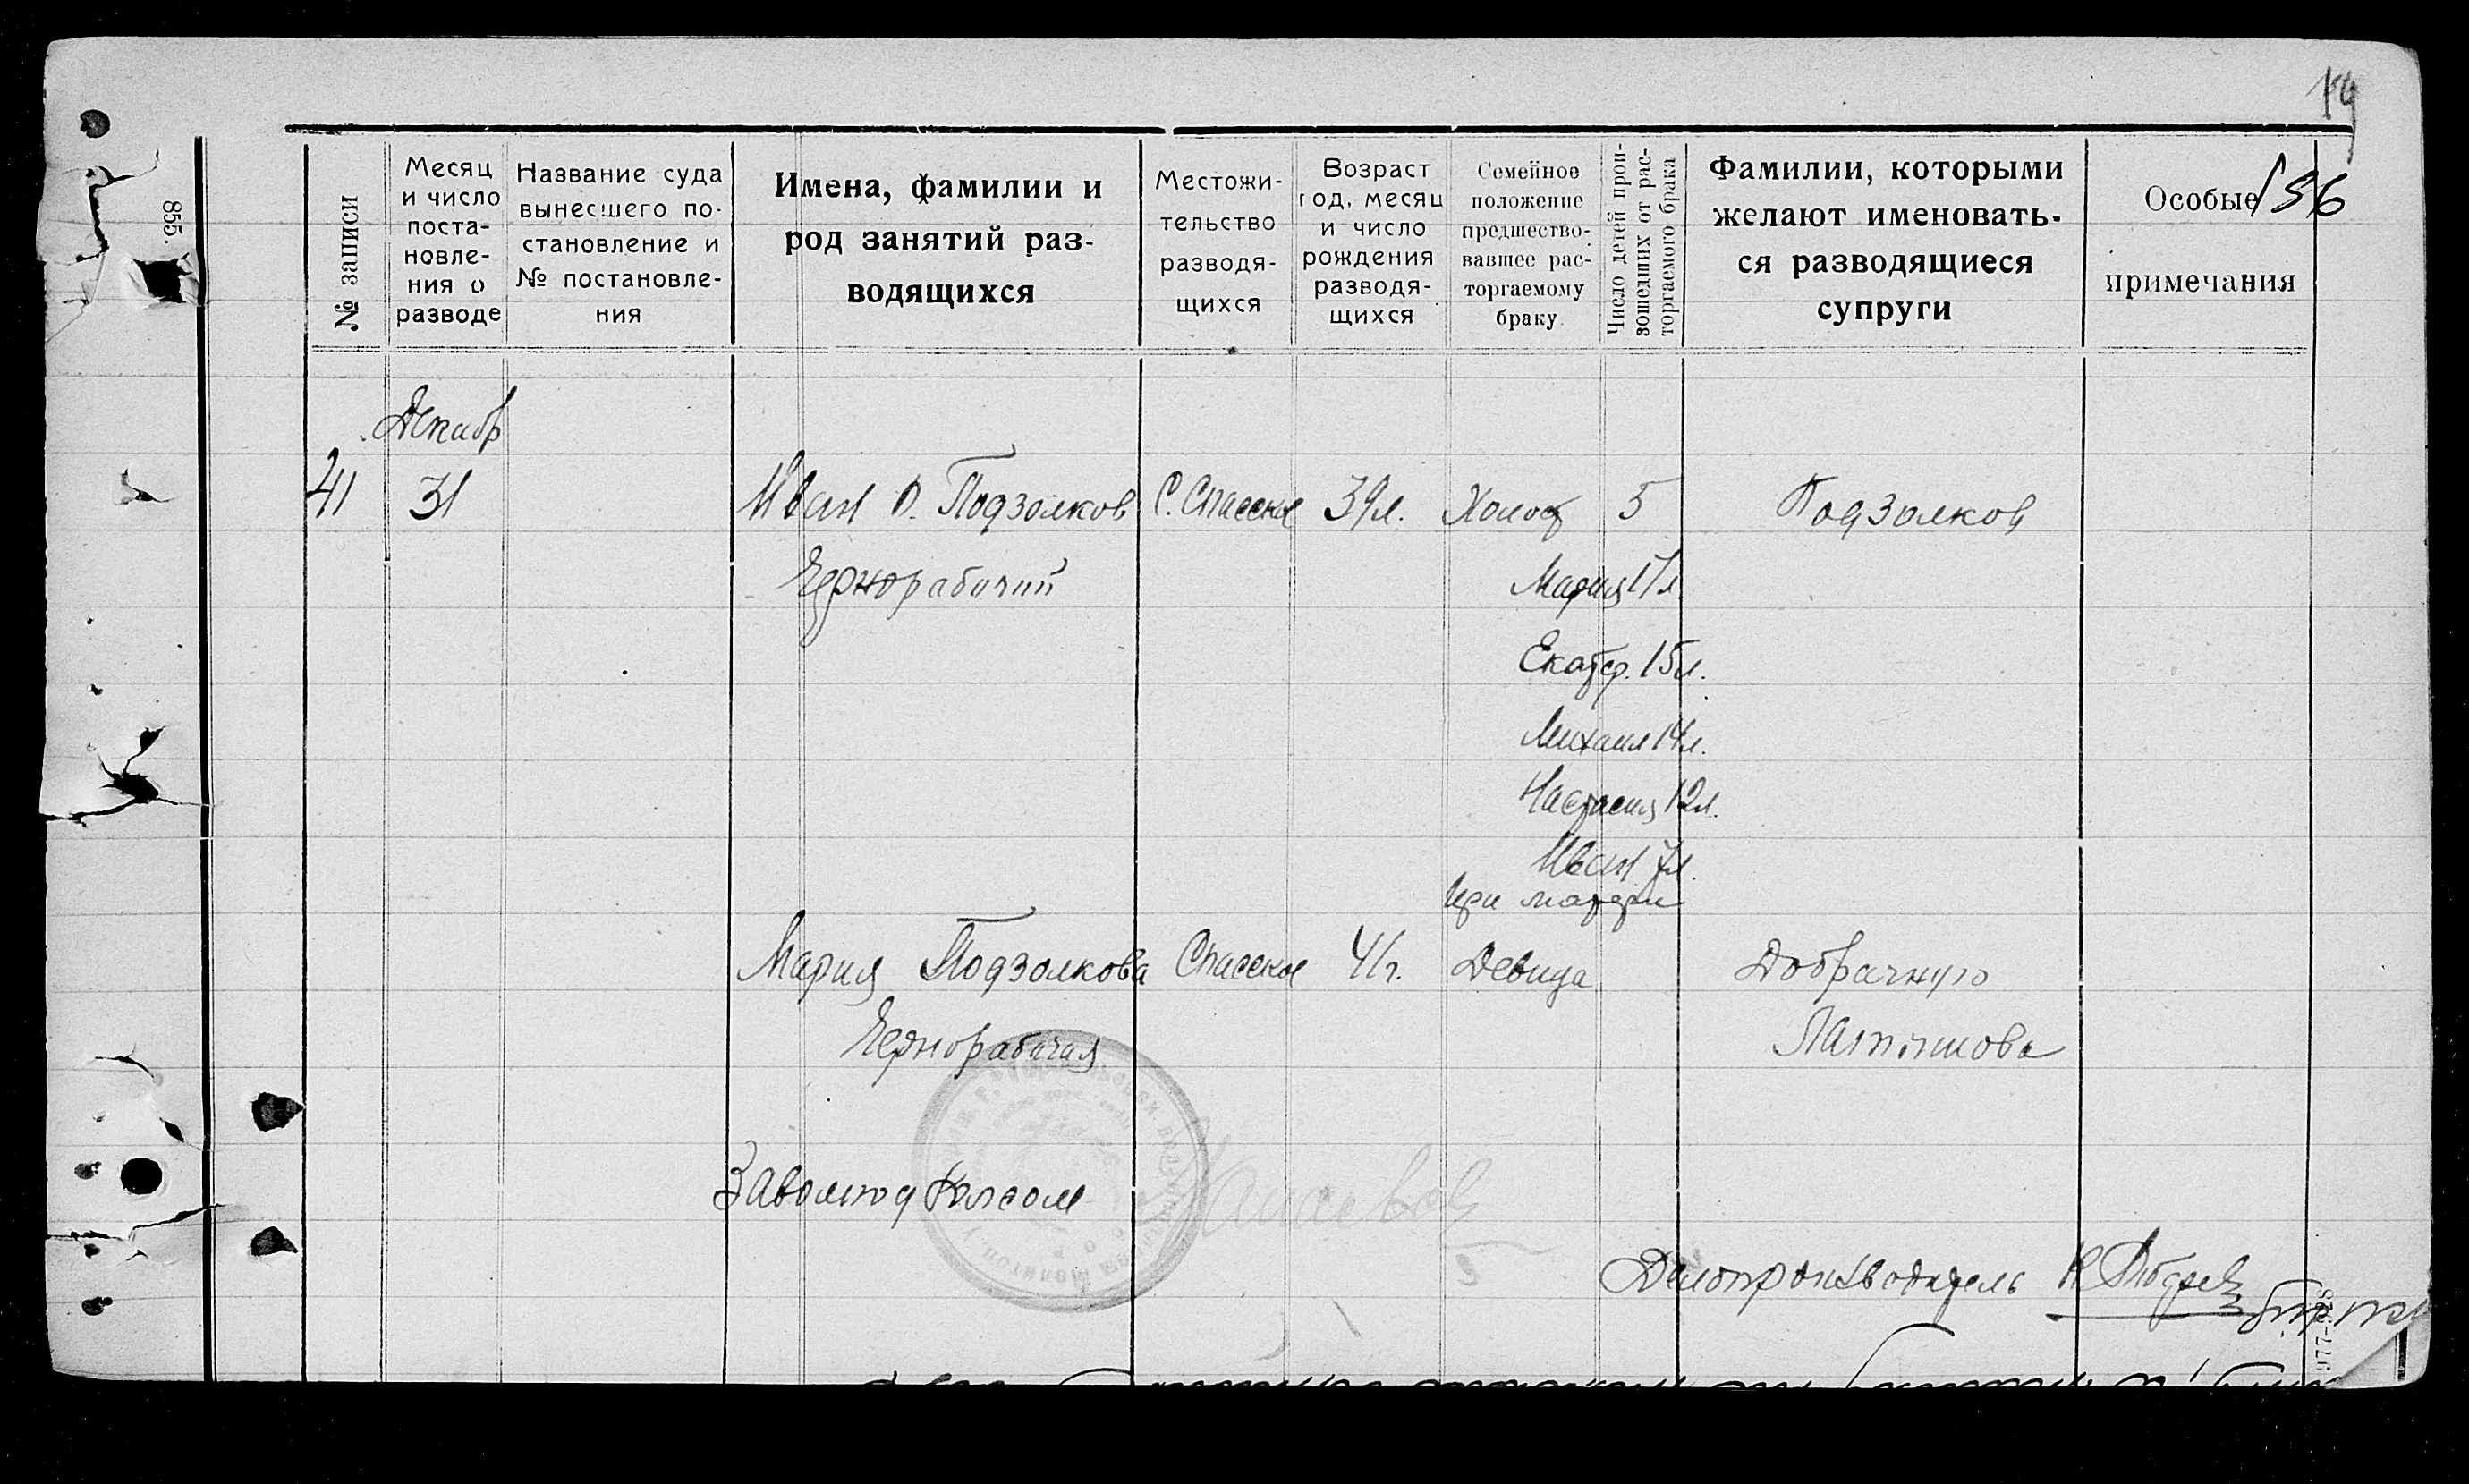 855.
156
№ записи
Месяц
и число
поста-
новле-
ния о
разводе
Название суда
вынесшего по-
становление и
№ постановле-
ния
Имена, фамилии и
род занятий раз-
водящихся
Местожи-
тельство
разводя-
щихся
Возраст
год, месяц
и число
рождения
разводя-
щихся
Семейное
положение
предшество-
вавшее рас-
торгаемому
браку
Число детей прои-
зошедших от рас-
торгаемого брака
Фамилии, которыми
желают именовать-
ся разводящиеся
супруги
Особые
примечания
Декабр
41 31 Иван Подзолков С. Спасское 39л. Холост 5 Подзолков
Чернорабочий
Мария 17л.
Екатер. 15л.
Михаил 14л.
Настасия 12л.
Иван 7л.
при матери
Мария Подзолкова Спасское 41г. Девица Добрачную
Чернорабочая
Делопроизводитель